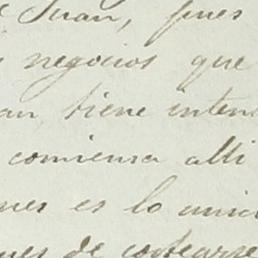 Juan, pues
negocios que
tiene inten
comiensa alli
nes es lo unic
de costearse